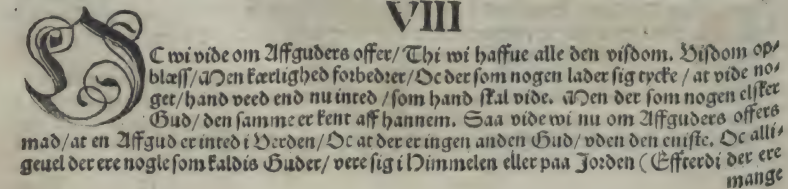 VIII
OC wi vide om Affguders offer/Thi wi haffue alle den visdom. Visdom op⸗
blæss/Men kærlighed forbedrer/Oc der som nogen lader sig tycke/at vide no⸗
get/hand veed end nu inted/som hand skal vide. Men der som nogen elsker
Gud/den samme er kent aff hannem. Saa vide wi nu om Affguders offers
mad/at en Affgud er inted i Verden/Oc at der er ingen anden Gud/vden den eniste. Oc alli⸗
geuel der ere nogle som kaldis Guder/vere sig i Himmelen eller paa Jorden (Effterdi der ere
mange